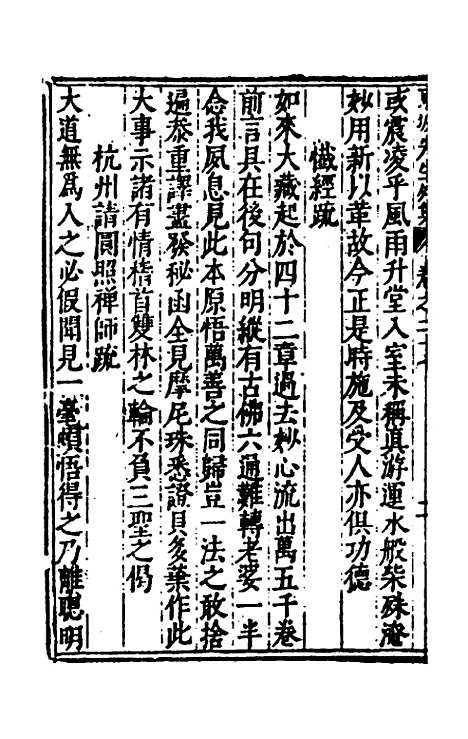 或震凌乎風雨升堂入室未稱真游運水般柴殊淹
妙用新以革故今正是時施及受人亦俱功德
檥經疏
如來大藏起於四十二章過去妙心流出萬五千卷
前言具在後句分明縱有古佛六通難轉老婆一半
念我夙息見此本原悟萬善之同歸豈一法之敢捨
遍叅重譯盡發秘函全見摩尼珠悉證貝多葉作此
大事示諸有情稽首雙林之輪不負三聖之偈
杭州請圓照禅師疏
大道無爲入之必假聞見一毫頓悟得之乃離聰明